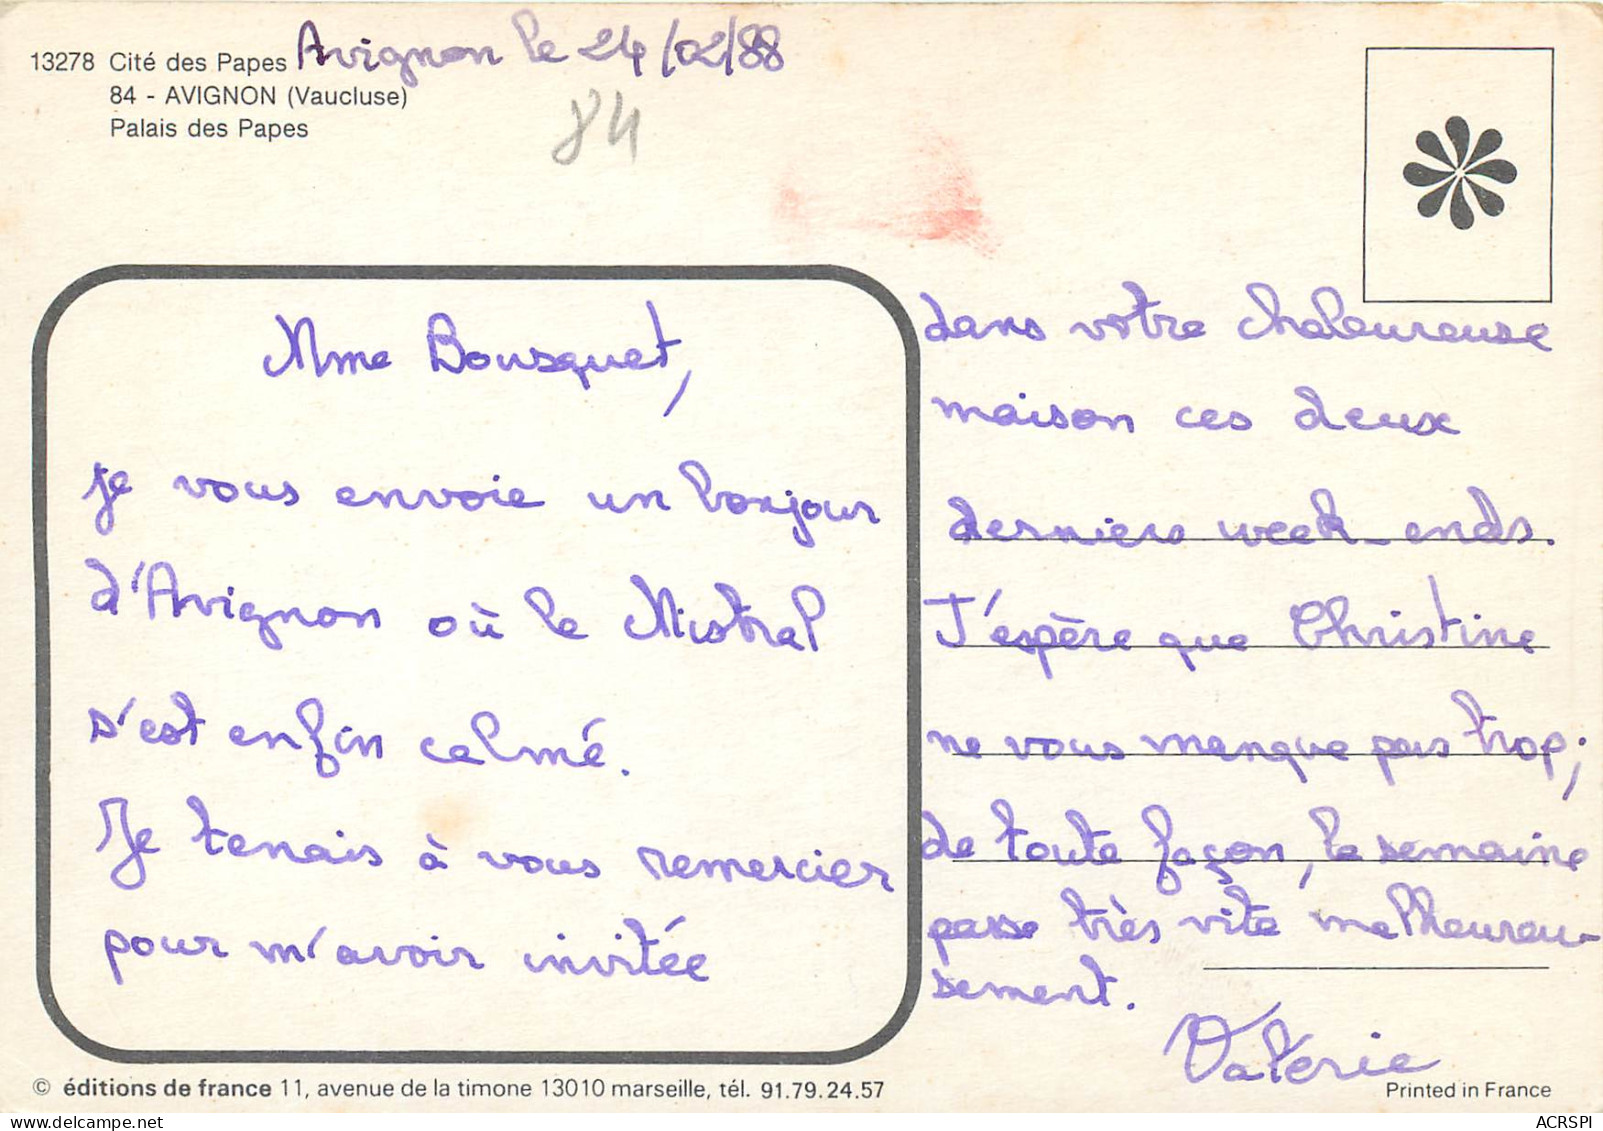 13278 Cité des Papes
84 - AVIGNON (Vaucluse)
Palais des Papes
Avignon le 24/02/88
84
Mme Bousquet,
je vous envoie un bonjour
d'Avignon où le Mistral
s'est enfin calmé.
Je tenais à vous remercier
pour m'avoir invitée
dans votre chaleureuse
maison ces deux
derniers week-ends.
J'espère que Christine
ne vous manque pas trop;
de toute façon, la semaine
passe très vite malheureu-
sement.
Valérie
© éditions de france 11, avenue de la timone 13010 marseille, tél. 91.79.24.57
Printed in France
delcampe.net
ACRSPI